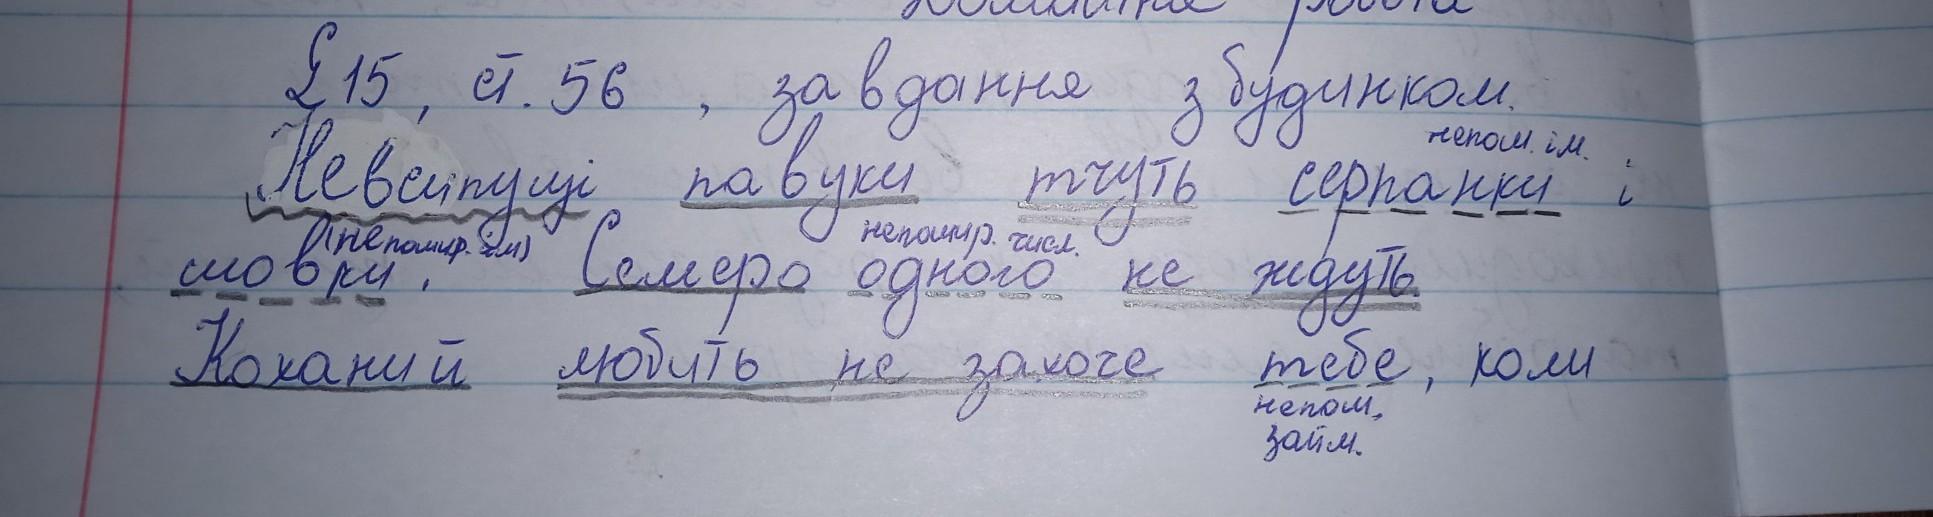 Домашня робота
§15, ст. 56, завдання з будинком.
непош. ім.
Невсипущі павуки тчуть серпанки і
(непошир. ім) непошир. числ.
шовки. Семеро одного не ждуть.
Коханий любить не захоче тебе, коли
непош.
займ.